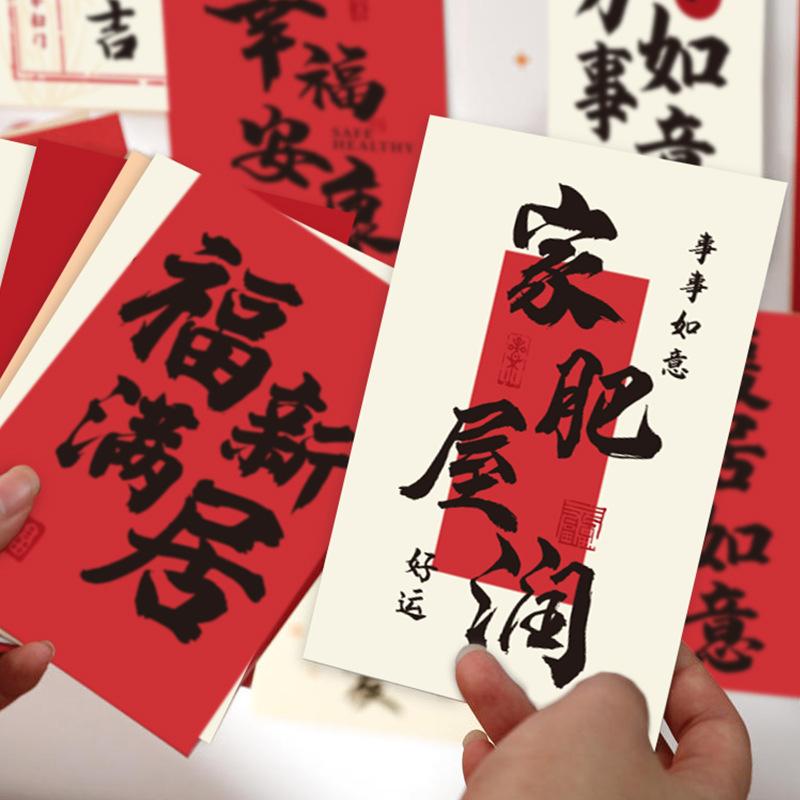 吉
幸福
安康
SAFE
HEALTHY
事
如意
福满
新居
家肥
屋润
事事如意
好运
居如意